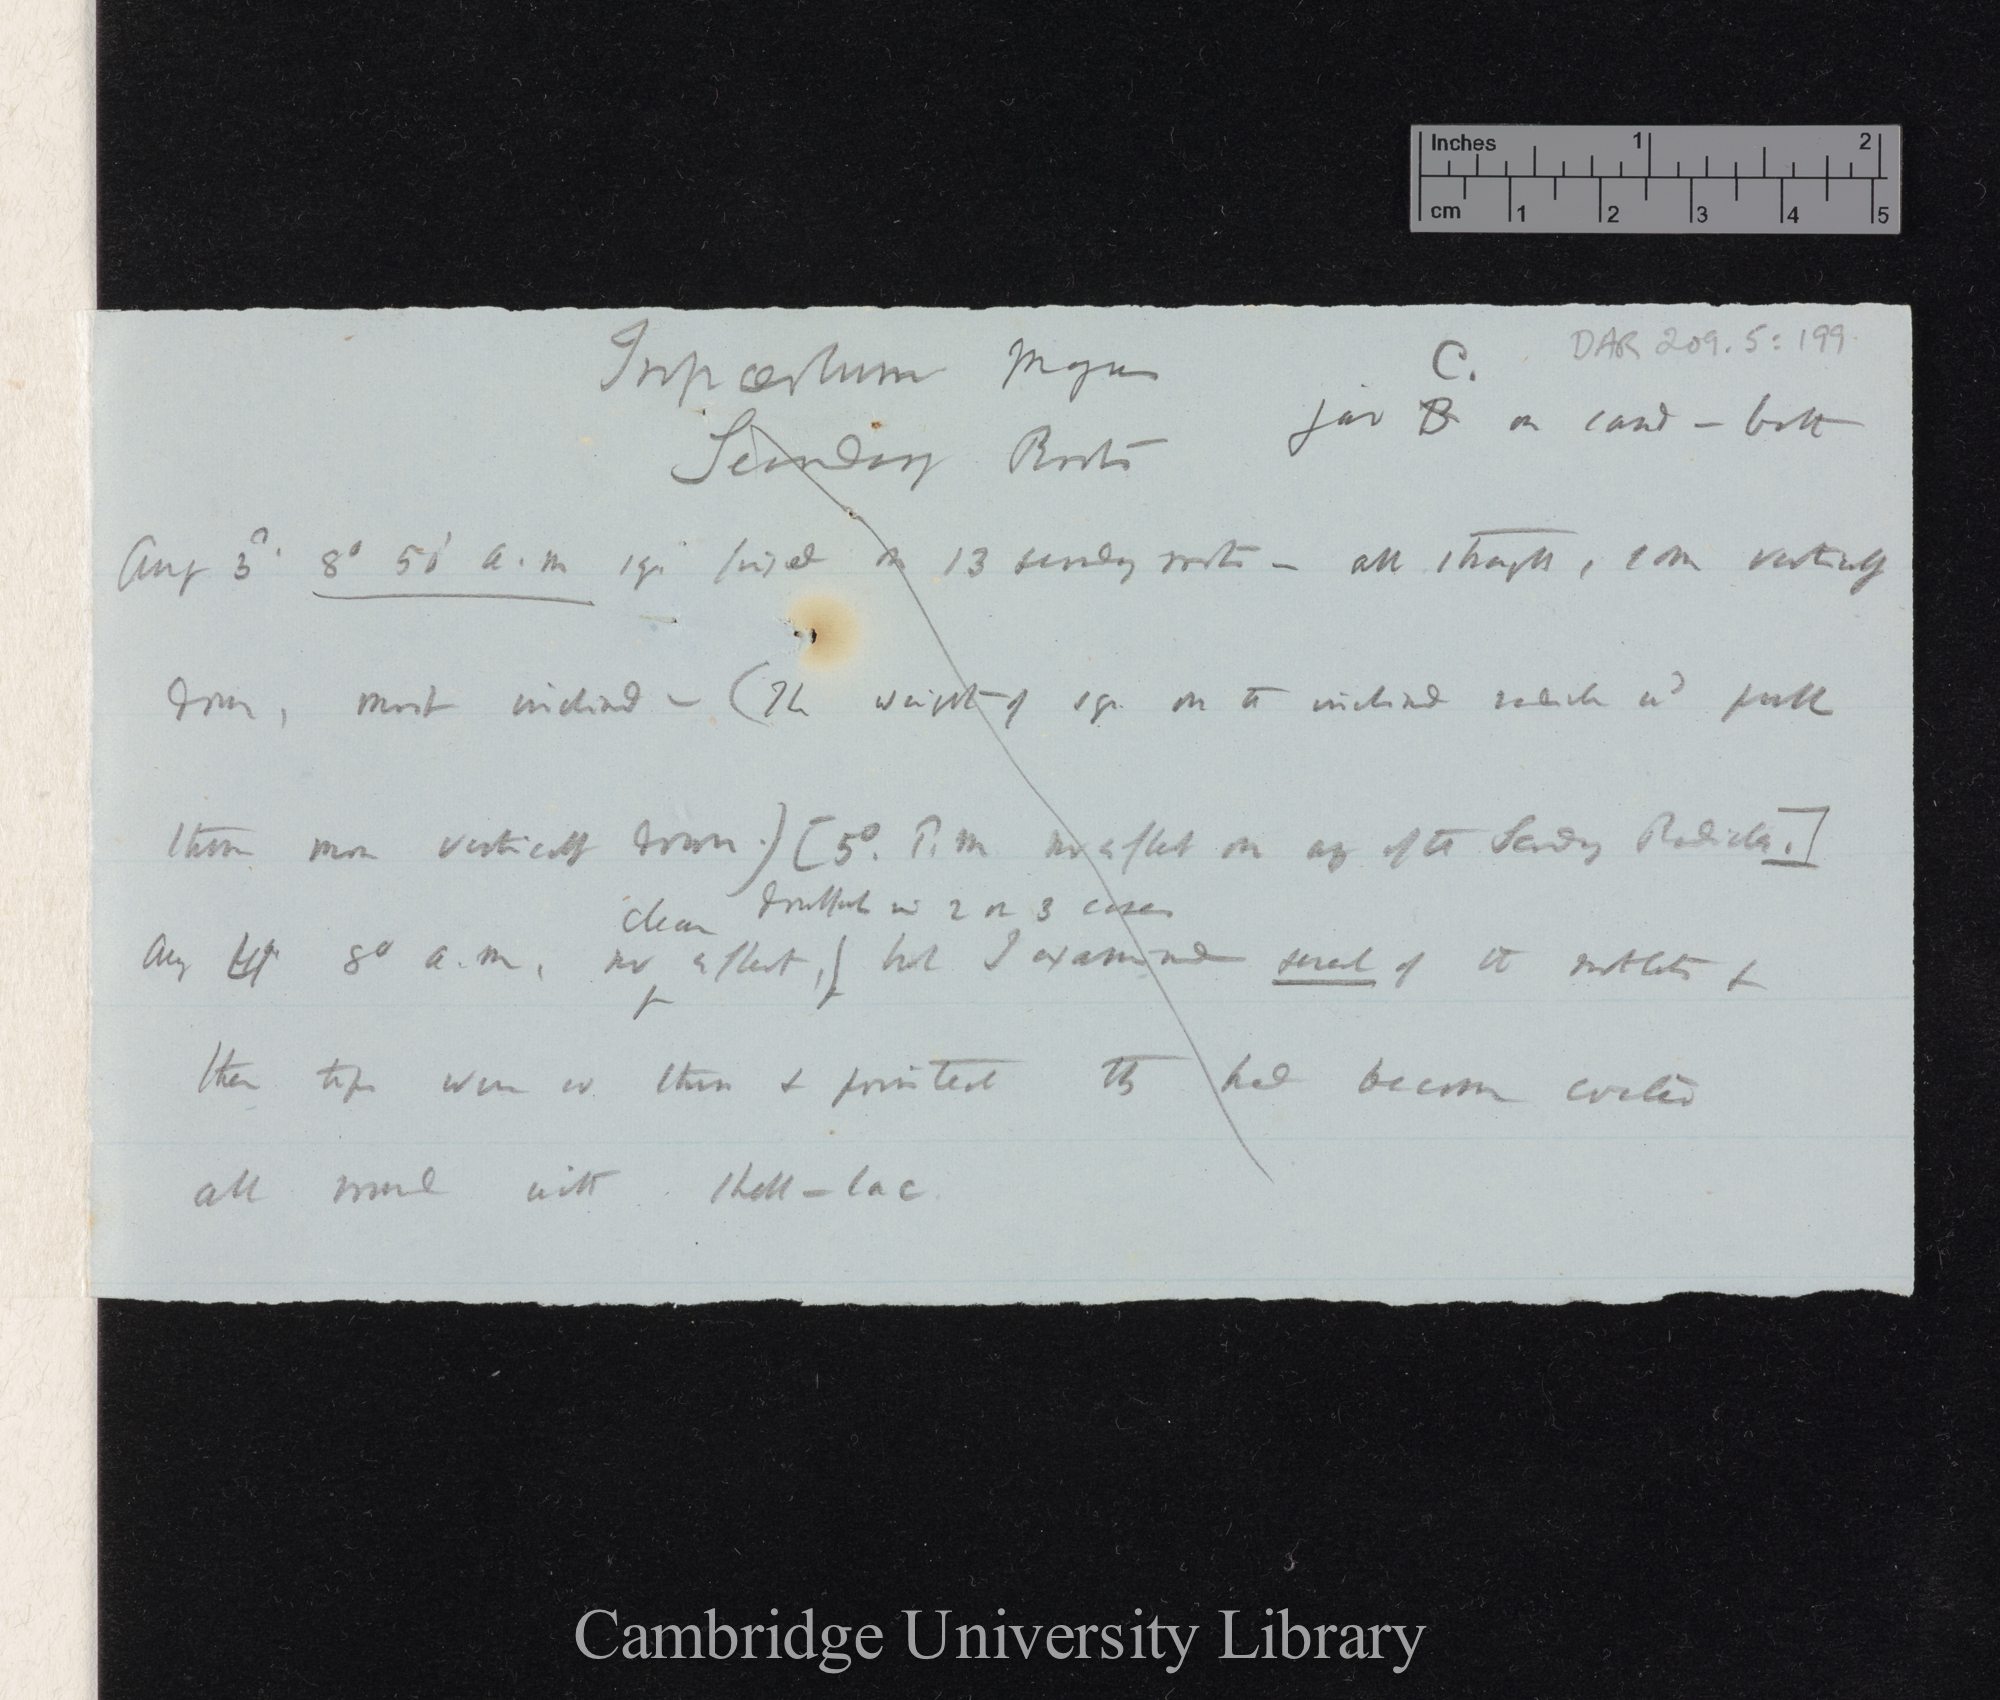 Inches 1 2
cm 1 2 3 4 5
DAR 209.5:199
Tropæolum majus C.
Secondary Roots jar B on card – both
Aug 3d. 8° 50' a.m sqrs fixed on 13 secondary roots – all straight, some vertically
down, most inclined – (The weight of sqrs on the inclined radicle wd pull
them more vertically down.) [5°. P.m no effect on any of the Secondary Radicles.]
clear doubtful in 2 or 3 cases
Aug 4th 8° a.m. no effect, but I examined several of the rootlets &
their tips were so thin & pointed they had become coated
all round with shell-lac
Cambridge University Library